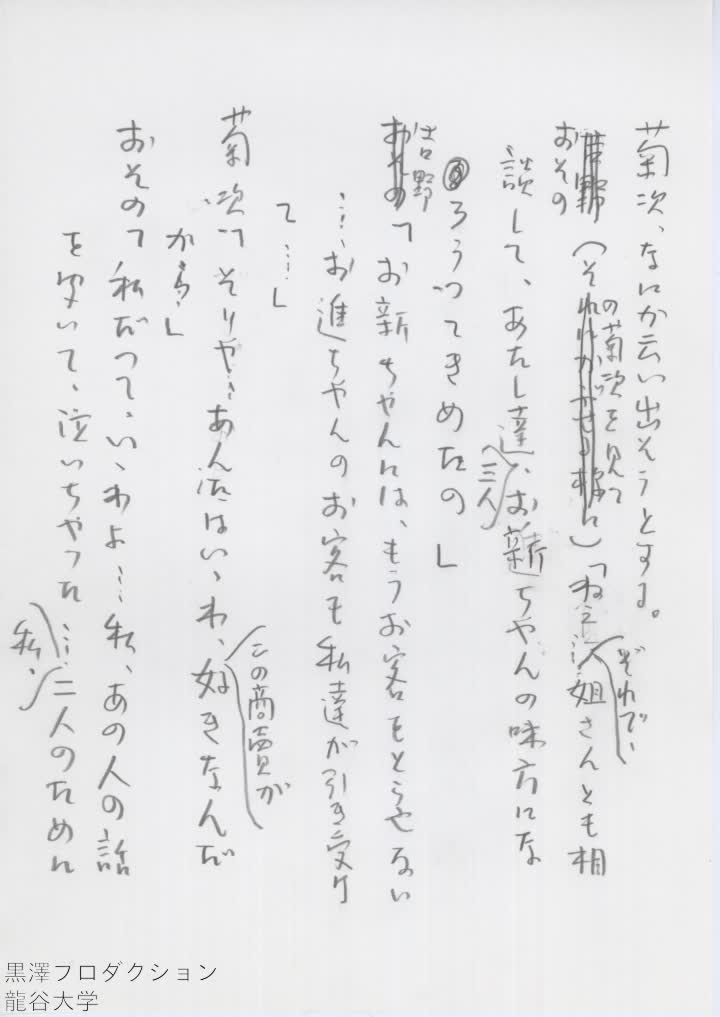 菊次、なにか云い出そうとする。
おその（の菊次を見て）「ねえ、それで、姐さんとも相
談して、あたし達、三人、お新ちゃんの味方にな
ろうってきめたの」
吉野「お新ちゃんには、もうお客をとらせない
……お進ちゃんのお客も私達が引き受け
て……」
菊次「そりゃ……あんたはいゝわ、この商売が好きなんだ
から……」
おその「私だって、いゝわよ……私、あの人の話
を聞いて、泣いちゃった……私、二人のために
黒澤プロダクション
龍谷大学